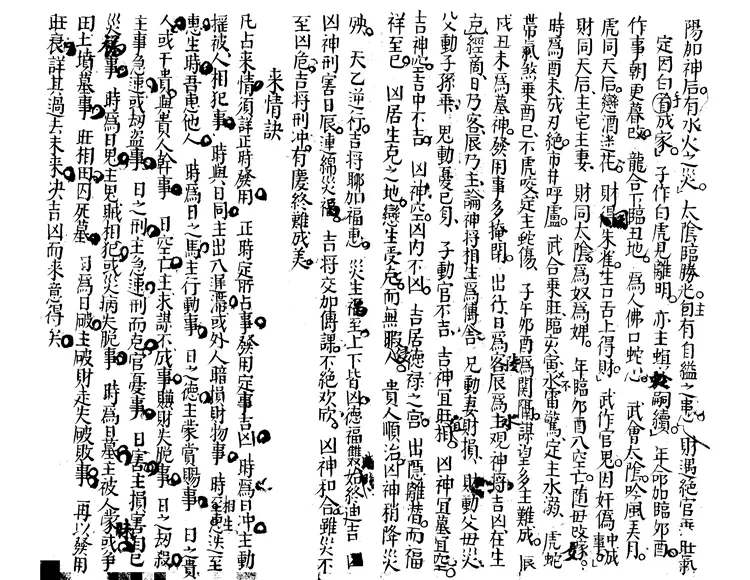 陽加神后有水火之災。太陰臨勝光有自縊之患。財遇絕官
定因白首成家。子作白虎見離明。亦主螟嗣續。年命加臨卯酉。
作事朝更暮改。龍合下臨丑地。為人佛口蛇心。武會太陰吟風弄月。
虎同天后戀酒迷花。財得朱雀生口舌上得財。武作官鬼因奸偽中成
財同天后主宅主妻。財同太陰為奴為婢。年臨卯酉八空亡隨母改嫁。
時為酉未戌刃絕市井呼盧。武合乘旺臨寅水雷驚定主水溺。虎蛇
帶氣煞乘酉巳不虎咬定主蛇傷。子午卯酉為關隔謀望多主難成。辰
戌丑未為墓神發用事多掩閉。出行日為客辰為主觀神將吉凶在生
克經商日乃客辰乃主論神將相生為傳合。兄動妻財損。財動父母災
父動子孫乖。鬼動憂己身。子動官不吉。吉神宜旺相。凶神宜墓空。
吉神空吉中不吉。凶神空凶內不凶。吉居德祿之宮。出應離潛而福
祥至已。凶居生克之地戀生受克而無暇。貴人順治凶神稍降災
殃。天乙逆之行吉將聊加福惠。災生福至上下皆凶德福雙始終迪吉
凶神刑害日辰連綿災禍。吉將交加傳課不絕歡欣。凶神和合雖災不
至凶危。吉將刑沖有慶終難成美。
來情訣
凡占來情須詳正時發用 正時定所占事發用定事吉凶 時為日沖主動
搖被人相犯事 時與日同主出入遲滯或外人暗損財物事 時
惠生時吾惠他人 時為日之馬主行動事 日之德主蒙賞賜事 日之貴
人或干貴與貴人幹事 日空亡主求謀不成事賺財失脫事 日之劫殺
主事急速或劫盜事 日之刑主急速刑而克官憂事 日害主損害自已
災事 時為日鬼主鬼賊相犯或災病失脫事 時為日墓主被人蒙或爭
田土墳墓事 旺相田囚死墓 時為日破主破財走失破敗事 再以發用
旺衰詳其過去未來決吉凶而來意得矣